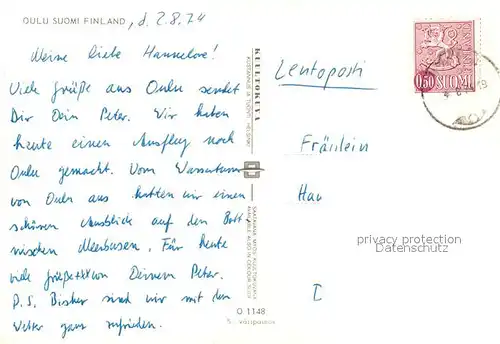 OULU SUOMI FINLAND, d. 2.8.74
Meine liebe Hannelore!
Viele Grüße aus Oulu sendet
Dir Dein Peter. Wir haben
heute einen Ausflug nach
Oulu gemacht. Vom Wasserturm
von Oulu aus hatten wir einen
schönen Ausblick auf den Bott
nischen Meerbusen. Für heute
viele Grüße+xxx von Deinem Peter.
P.S. Bisher sind wir mit dem
Wetter ganz zufrieden.
KULTOKUVA
O 1148
Lentoposti
0,50 SUOMI
Fräulein
Han
privacy protection
www.akpool.de
I